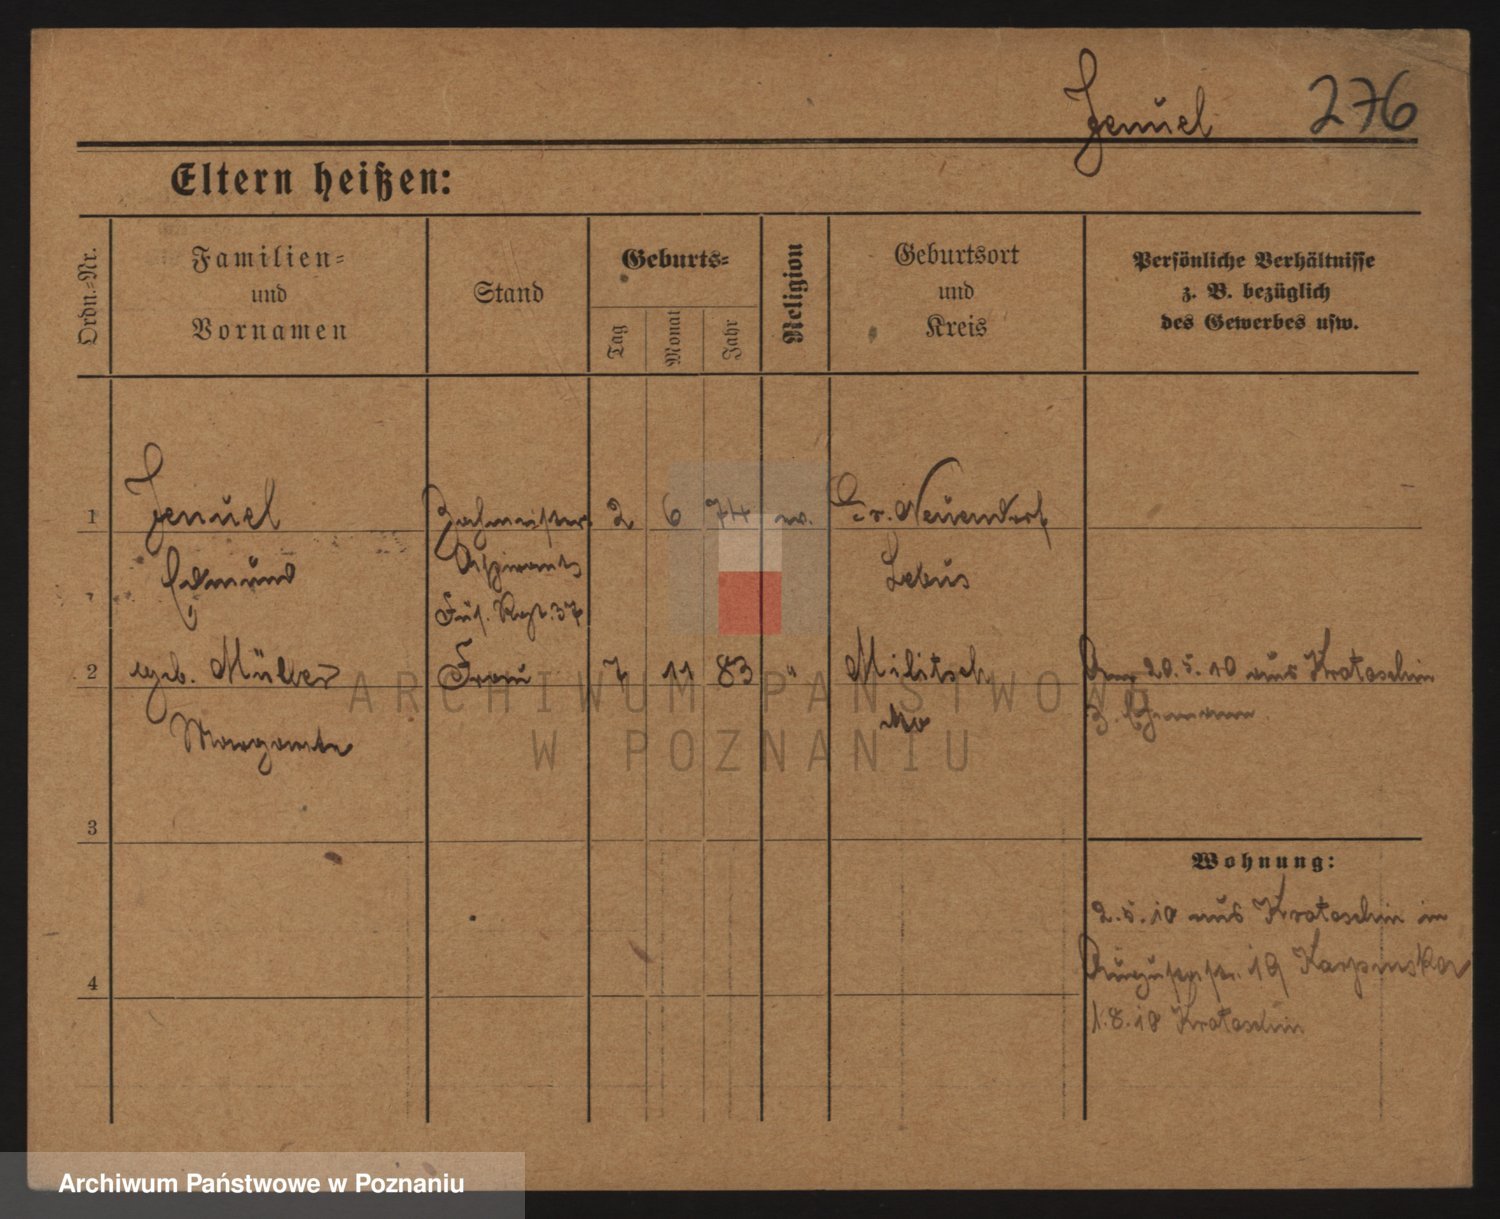 Jenuel 276
Eltern heißen:
Ordn.-Nr.
Familien-
und
Vornamen
Stand
Geburts-
Tag
Monat
Jahr
Religion
Geburtsort
und
Kreis
Persönliche Verhältnisse
z. B. bezüglich
des Gewerbes usw.
1 Jenuel Zahlmeister 2 6 74 ev. Gr. Neuendorf
Edmund Aspirant Lebus
Füs. Rgt. 37
2 geb. Müller Frau 7 11 83 " Militsch 20.5.10 aus Krotoschin
Margarete z. Ehemann
3
Wohnung:
2.5.10 aus Krotoschin in
Augustastr. 19 Karpinska
4
1.8.10 Krotoschin
ARCHIWUM PAŃSTWOWE
W POZNANIU
Archiwum Państwowe w Poznaniu